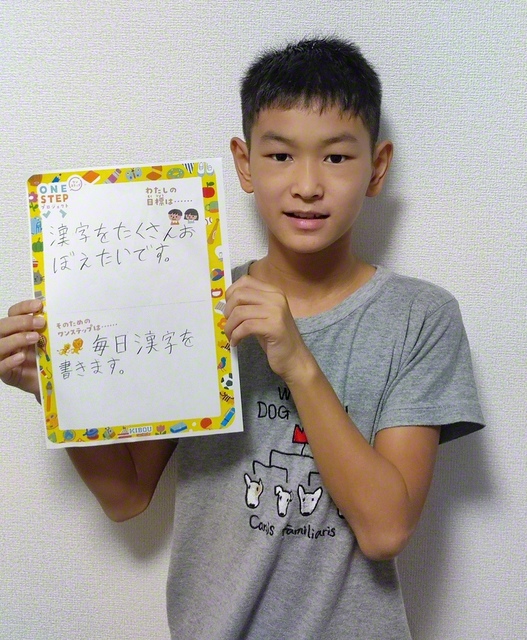 ONE
STEP
プロジェクト
わたしの
目標は……
漢字をたくさんお
ぼえたいです。
そのための
ワンステップは……
毎日漢字を
書きます。
KIBOU
DOG
Canis familiaris